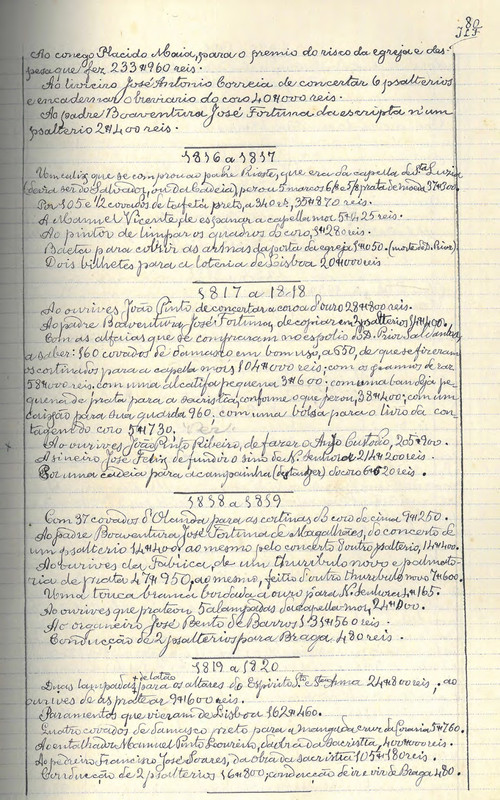 80
Ao conego Placido Maia, para o premio do risco da egreja e des-
pesa que fez 233#960 reis.
Ao livreiro José Antonio Correia de concertar 6 psalterios
e encadernar o breviario do coro 40#000 reis.
Ao padre Boaventura José Fortuna da escripta n'um
psalterio 2#400 reis.
1816 a 1817
Um calix que se comprou ao padre Duarte, que era da capella de Sta Luzia
(deverá ser do Salvador, ou da Cadeia), pesou 5 marcos prata de moeda 37#300
Por 105 e 1/2 covados de tafetá preto, a 340 rs, 35#870 reis.
A Manuel Vicente, de espanar a capella mor 5#425 reis.
Ao pintor de limpar os quadros do coro, 3#280 reis.
Baeta para cobrir as armas da porta da egreja 1#050. (morte do D. Prior)
Dois bilhetes para a loteria de Lisboa 20#000 reis
1817 a 1818
Ao ourives João Pinto de concertar a coroa d'ouro 28#800 reis.
Ao padre Boaventura José Fortuna, de copiar em 2 psalterios 14#400.
Com as alfaias que se compraram no espolio do D. Prior Saldanha,
a saber: 160 covados de damasco em bom uso, a 650, de que se fizeram
os cortinados para a capella mor 104#000 reis; com os pannos de raz
58#000 reis; com uma alcatifa pequena 3#600; com uma bandeja pe-
quena de prata para a sacristia, conforme o que pesou, 38#400; com um
caixão para sua guarda 960. com uma bolsa para o livro da con-
tagem do coro 5#730.
Ao ourives João Pinto Ribeiro, de fazer o Anjo Custodio, 205#900.
A sineiro José Felix, de fundir o sino de N. Senhora 214#200 reis.
Por uma cadeia para a campainha (de tanger) do coro 6#520 reis.
1818 a 1819
Com 37 covados d'Olanda para as cortinas do coro de cima 9#250.
Ao padre Boaventura José Fortuna de Magalhães, do concerto de
um psalterio 14#400; ao mesmo pelo concerto d'outro psalterio, 14#400.
Ao ourives da Fabrica, de um thuribulo novo e palmato-
ria de prata 47#950, ao mesmo, feitio d'outro thuribulo novo 7#600.
Uma touca branca bordada a ouro para N. Senhora 4#165.
Ao ourives que prateou 5 alampadas da capella mor, 24#000.
Ao organeiro José Bento de Barros 131#560 reis.
Conducção de 2 psalterios para Braga 480 reis.
1819 a 1820
Duas lampadas de latão para os altares do Espirito Sto e Santanna 24#800 reis; ao
ourives de as pratear 9#600 reis.
Paramentos que vieram de Lisboa 162#460.
Quatro covados de damasco preto para a manga da cruz da 5#760.
Ao entalhador Manuel Pinto Loureiro, da obra da sacristia, 400#000 reis.
Ao pedreiro Francisco José Soares, da obra da sacristia 105#180 reis.
Conducção de 2 psalterios 16#800; conducção de ir e vir de Braga 480.